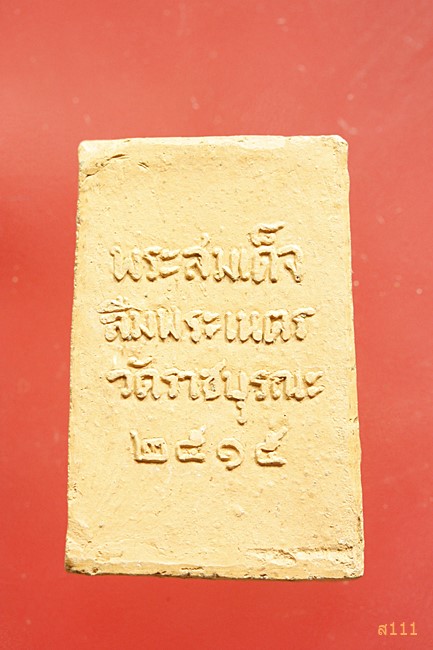 พระสมเด็จ
ลืมพระเนตร
วัดราชบุรณะ
๒๕๑๕
ส111